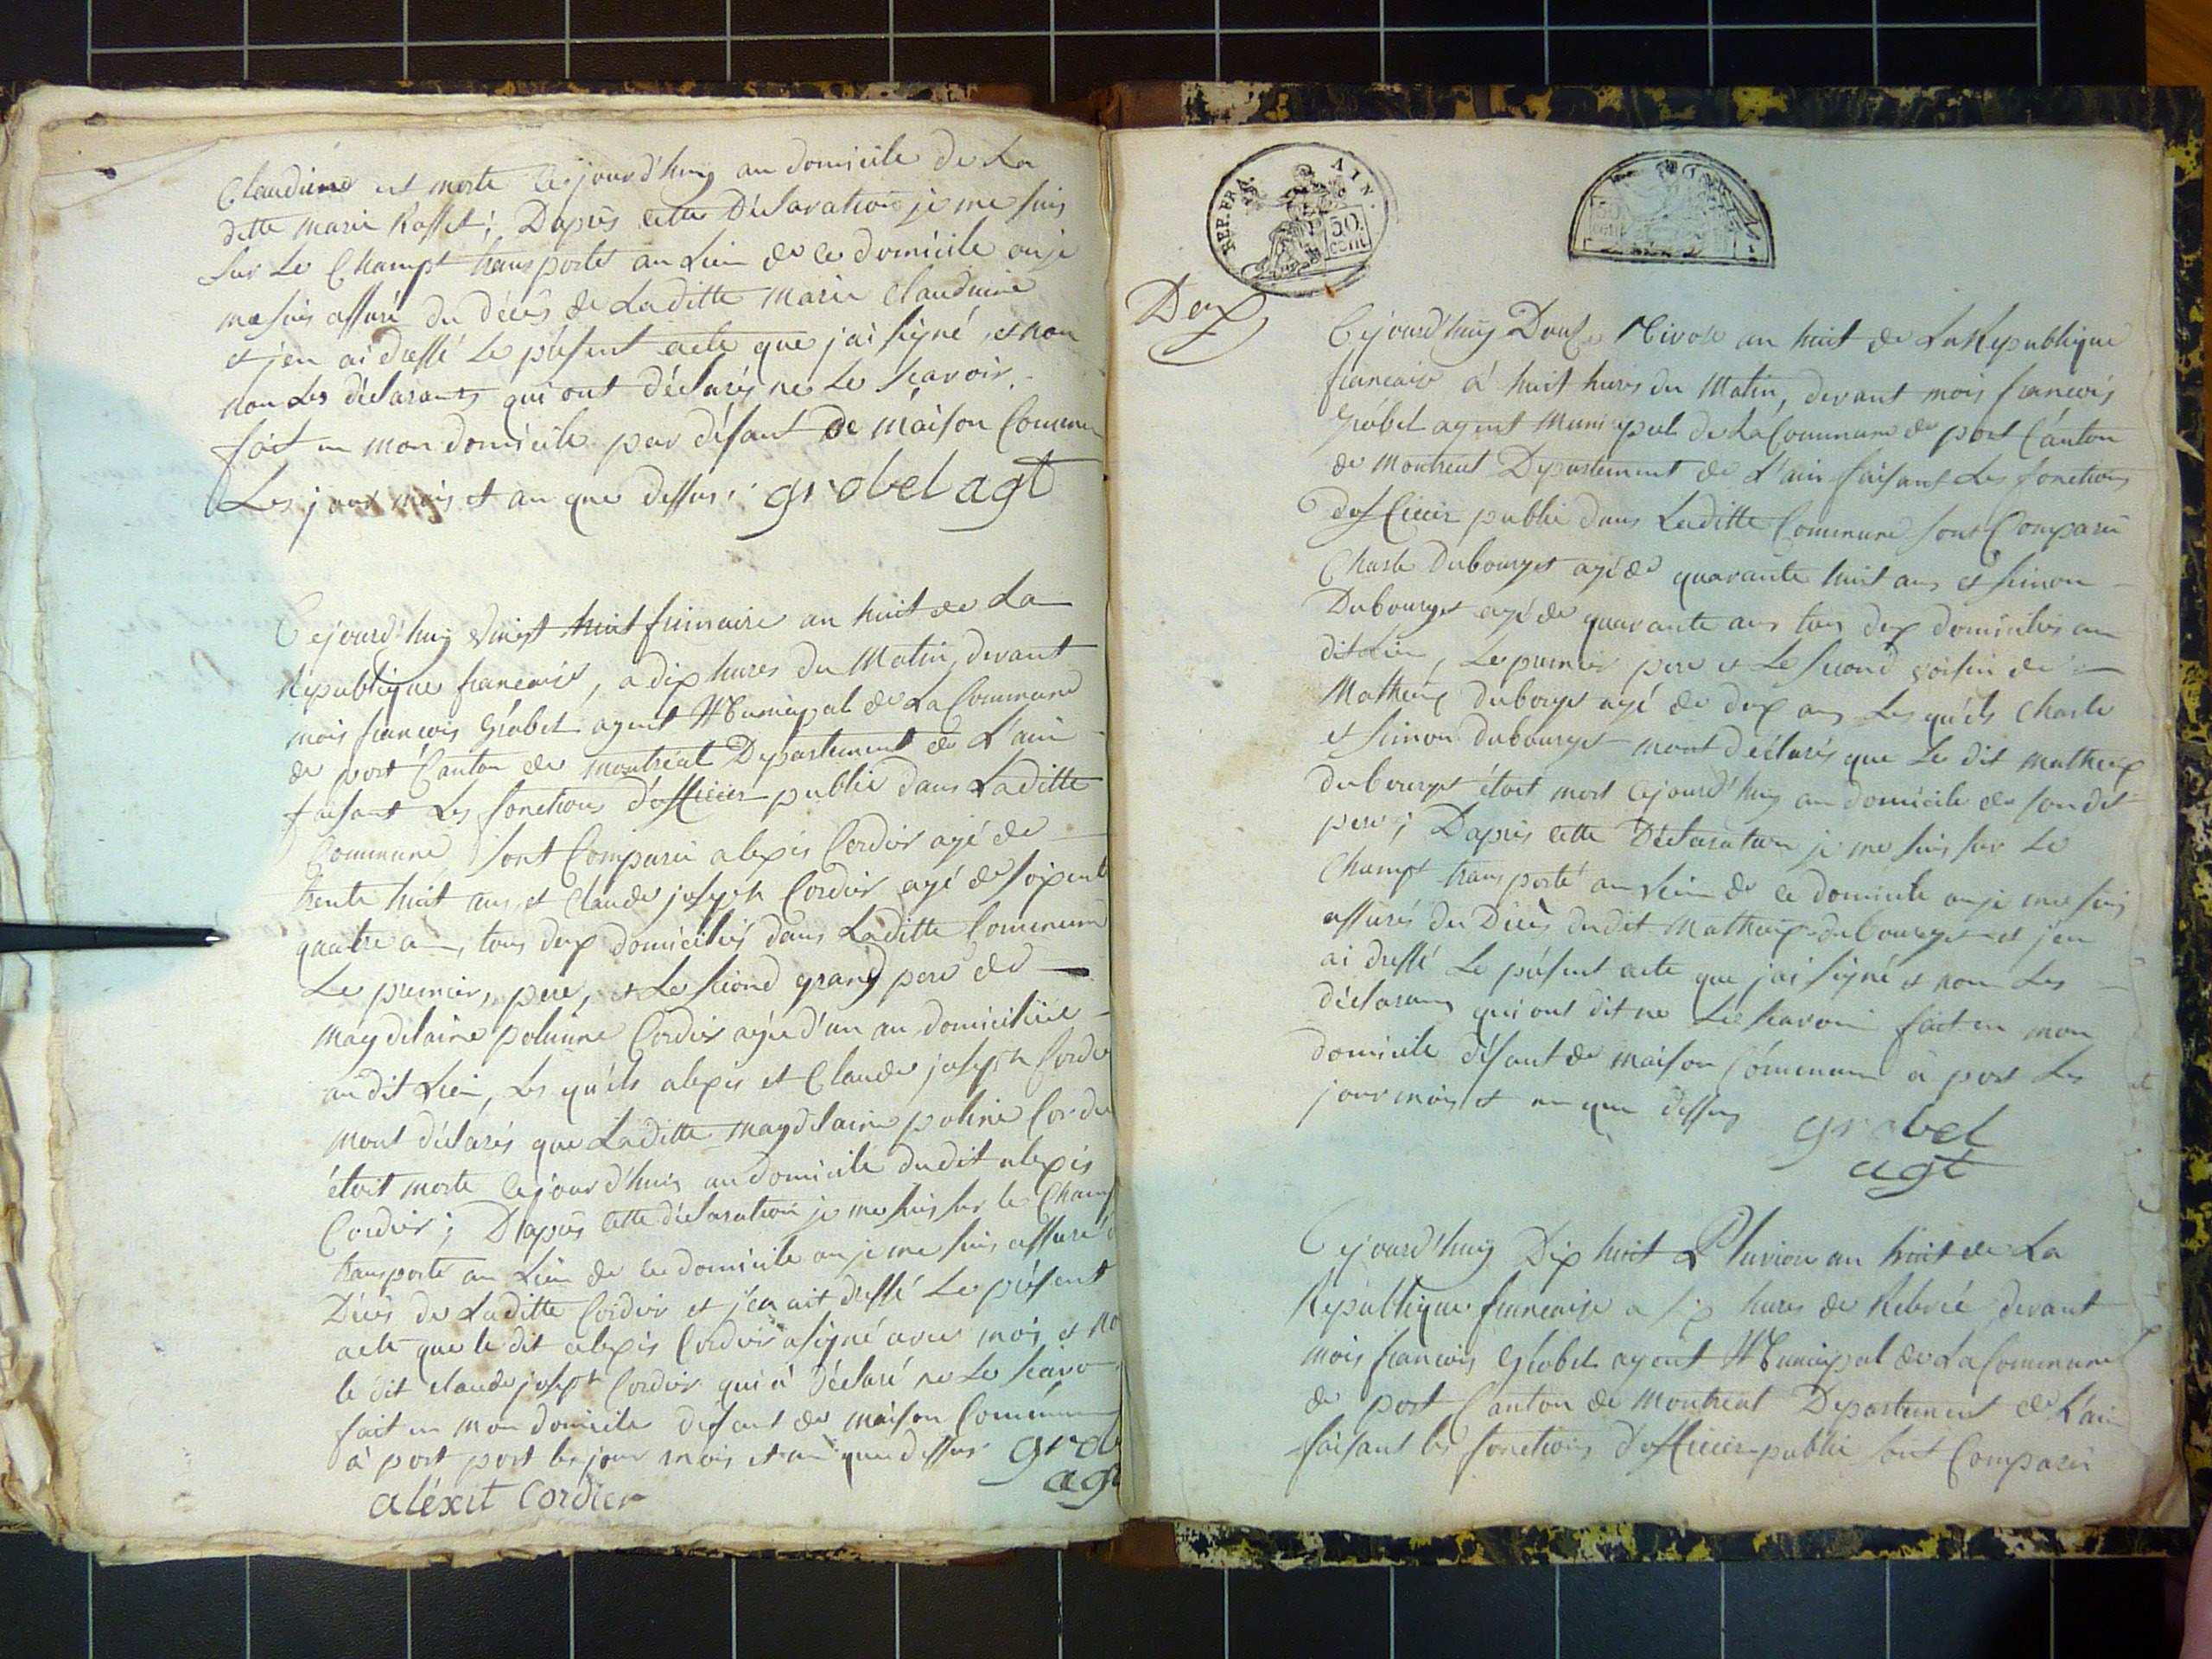 Claudine est morte cejourd'huy au domicile de La
ditte marie Rosset; Dapres cette Déclaration je me suis
sur Le Champt transporté au Lieu de ce domicile ou je
me suis assuré du décès de Laditte marie Claudine
et j'en ai dressé Le present acte que j'ai signé, et non
non Les déclarants qui ont déclarés ne Le scavoir.
fait en mon domicile par défaut de maison Commun
Les jour mois et an que dessus. grobel agt
Cejourd'huy vingt huit frimaire an huit de La
République francaise, a dix hures du Matin, devant
mois francois Grobel agent Municipal de La Commune
de port Canton de montreal Departement de L'ain
faisant Les fonctions d'officier public dans Laditte
Commune sont Comparu alexis Cordier agé de
trente huit ans, et Claude joseph Cordier agé de soixente
quatre an, tous deux domiciliés dans Laditte Commune
Le premier, pere, et Le second grand pere de
Magdelaine poluine Cordier agée d'un an domiciliée
au dit Lieu, Les quels alexis et Claude joseph Cordie
mont déclarés que Laditte magdelaine poline Cordie
étoit morte cejourd'huis au domicile dudit alexis
Cordier; Dapres cette déclaration je me suis sur le Champ
transporté au Lieu de ce domicile ou je me suis assuré d
Décès de Laditte Cordier et j'en ait dressé Le présent
acte que le dit alexis Cordier a signé avec mois, et no
le dit claude joseph Cordier qui a déclaré ne Le scavo
fait en mon domicile defaut de maison Commun
à port port les jour mois et an que dessus grob
alexit Cordier ag
REP. FRA. AIN. 50 cent
50 cent
Deux
Cejourd'huy Douze Nivose an huit de La Republique
francaise à huit hures du Matin, devant mois francois
Grobel agent Municipal de La Commune de port Canton
de Montreal Departement de L'ain faisant Les fonctions
d'officier public dans Laditte Commune sont Comparu
Charle Dubourget agé de quarante huit ans et simon
Dubourget agé de quarante ans tous deux domiciliés au
dit Lieu, Le premier pere et Le second voisin de
Matheux dubourget agé de deux ans Les quels Charle
et simon dubourget mont déclarés que Le dit matheux
dubourget étoit mort cejourd'huy au domicile de son dit
pere; Dapres cette Déclaration je me suis sur Le
Champt transporté au Lieu de ce domicile ou je me suis
assurés du Décès dudit Matheux dubourget et j'en
ai dressé Le présent acte que j'ai signé et non Les
déclarans qui ont dit ne Le scavoir fait en mon
domicile défaut de maison Commune à port Les
jour mois et an que dessus
grobel
agt
Cejourd'huy Dix huit Pluviose an huit de La
République francaise a six hures de Relevé, devant
mois francois Grobel agent Municipal de La Commune
de port Canton de Montreal Departement de L'ain
faisant les fonctions d'officier public sont Comparu